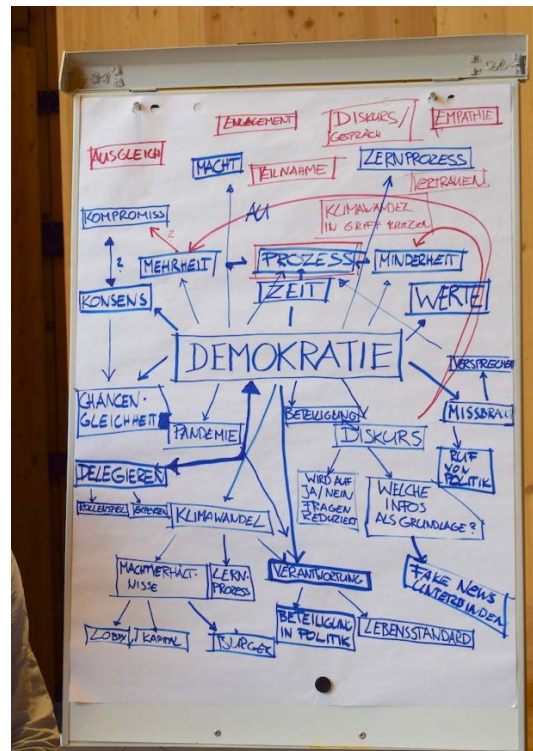 ENGAGEMENT
DISKURS/
GESPRÄCH
EMPATHIE
AUSGLEICH
MACHT
TEILNAHME
LERNPROZESS
VERTRAUEN
KOMPROMISS
KLIMAWANDEL
IN GRIFF KRIEGEN
?
?
MEHRHEIT
PROZESS
MINDERHEIT
KONSENS
ZEIT
WERTE
DEMOKRATIE
VERSPRECHEN
CHANCEN-
GLEICHHEIT
PANDEMIE
BETEILIGUNG
DISKURS
MISSBRAU
RUF
VON
POLITIK
DELEGIEREN
ROLLENSPIEL
EXPERTEN
KLIMAWANDEL
WIRD AUF
JA/NEIN
FRAGEN
REDUZIERT
WELCHE
INFOS
ALS GRUNDLAGE?
MACHTVERHÄLT-
NISSE
LERN-
PROZESS
VERANTWORTUNG
FAKE NEWS
UNTERBINDEN
LOBBY
KAPITAL
BÜRGER
BETEILIGUNG
IN POLITIK
LEBENSSTANDARD